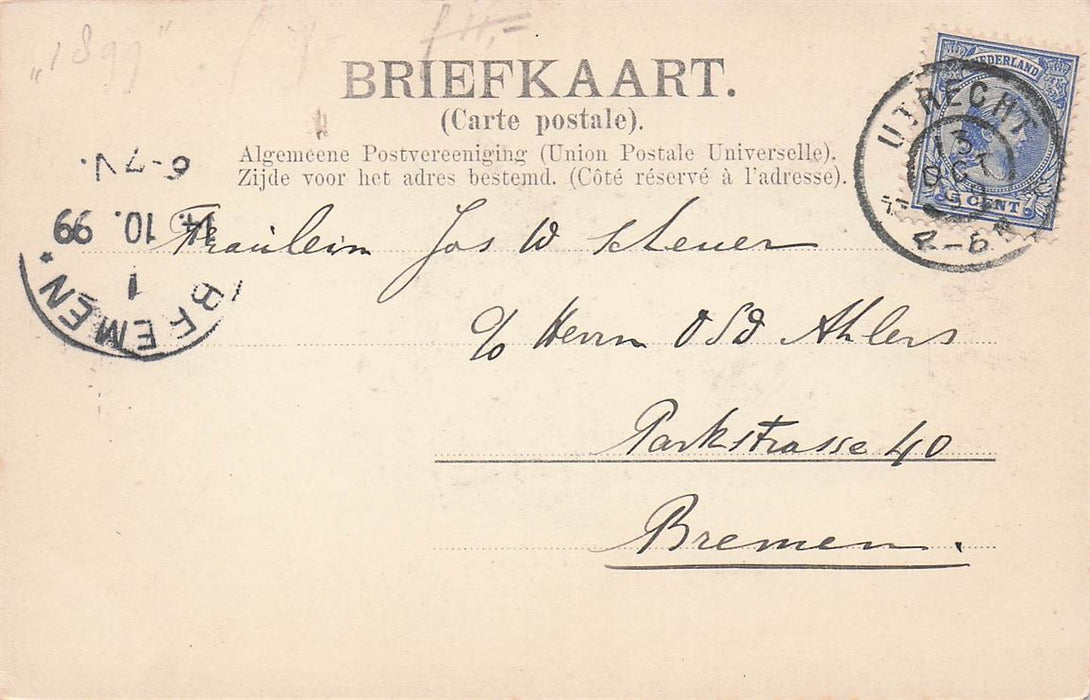 "1899"
f 11,=
BRIEFKAART.
(Carte postale).
Algemeene Postvereeniging (Union Postale Universelle).
Zijde voor het adres bestemd. (Côté réservé à l'adresse).
NEDERLAND
5 CENT
UTRECHT
13
OCT
6-7 V.
14. 10. 99
1
BREMEN *
Fräulein Jos W Scheuer
c/o Herrn Ahlers
Parkstrasse 40
Bremen.